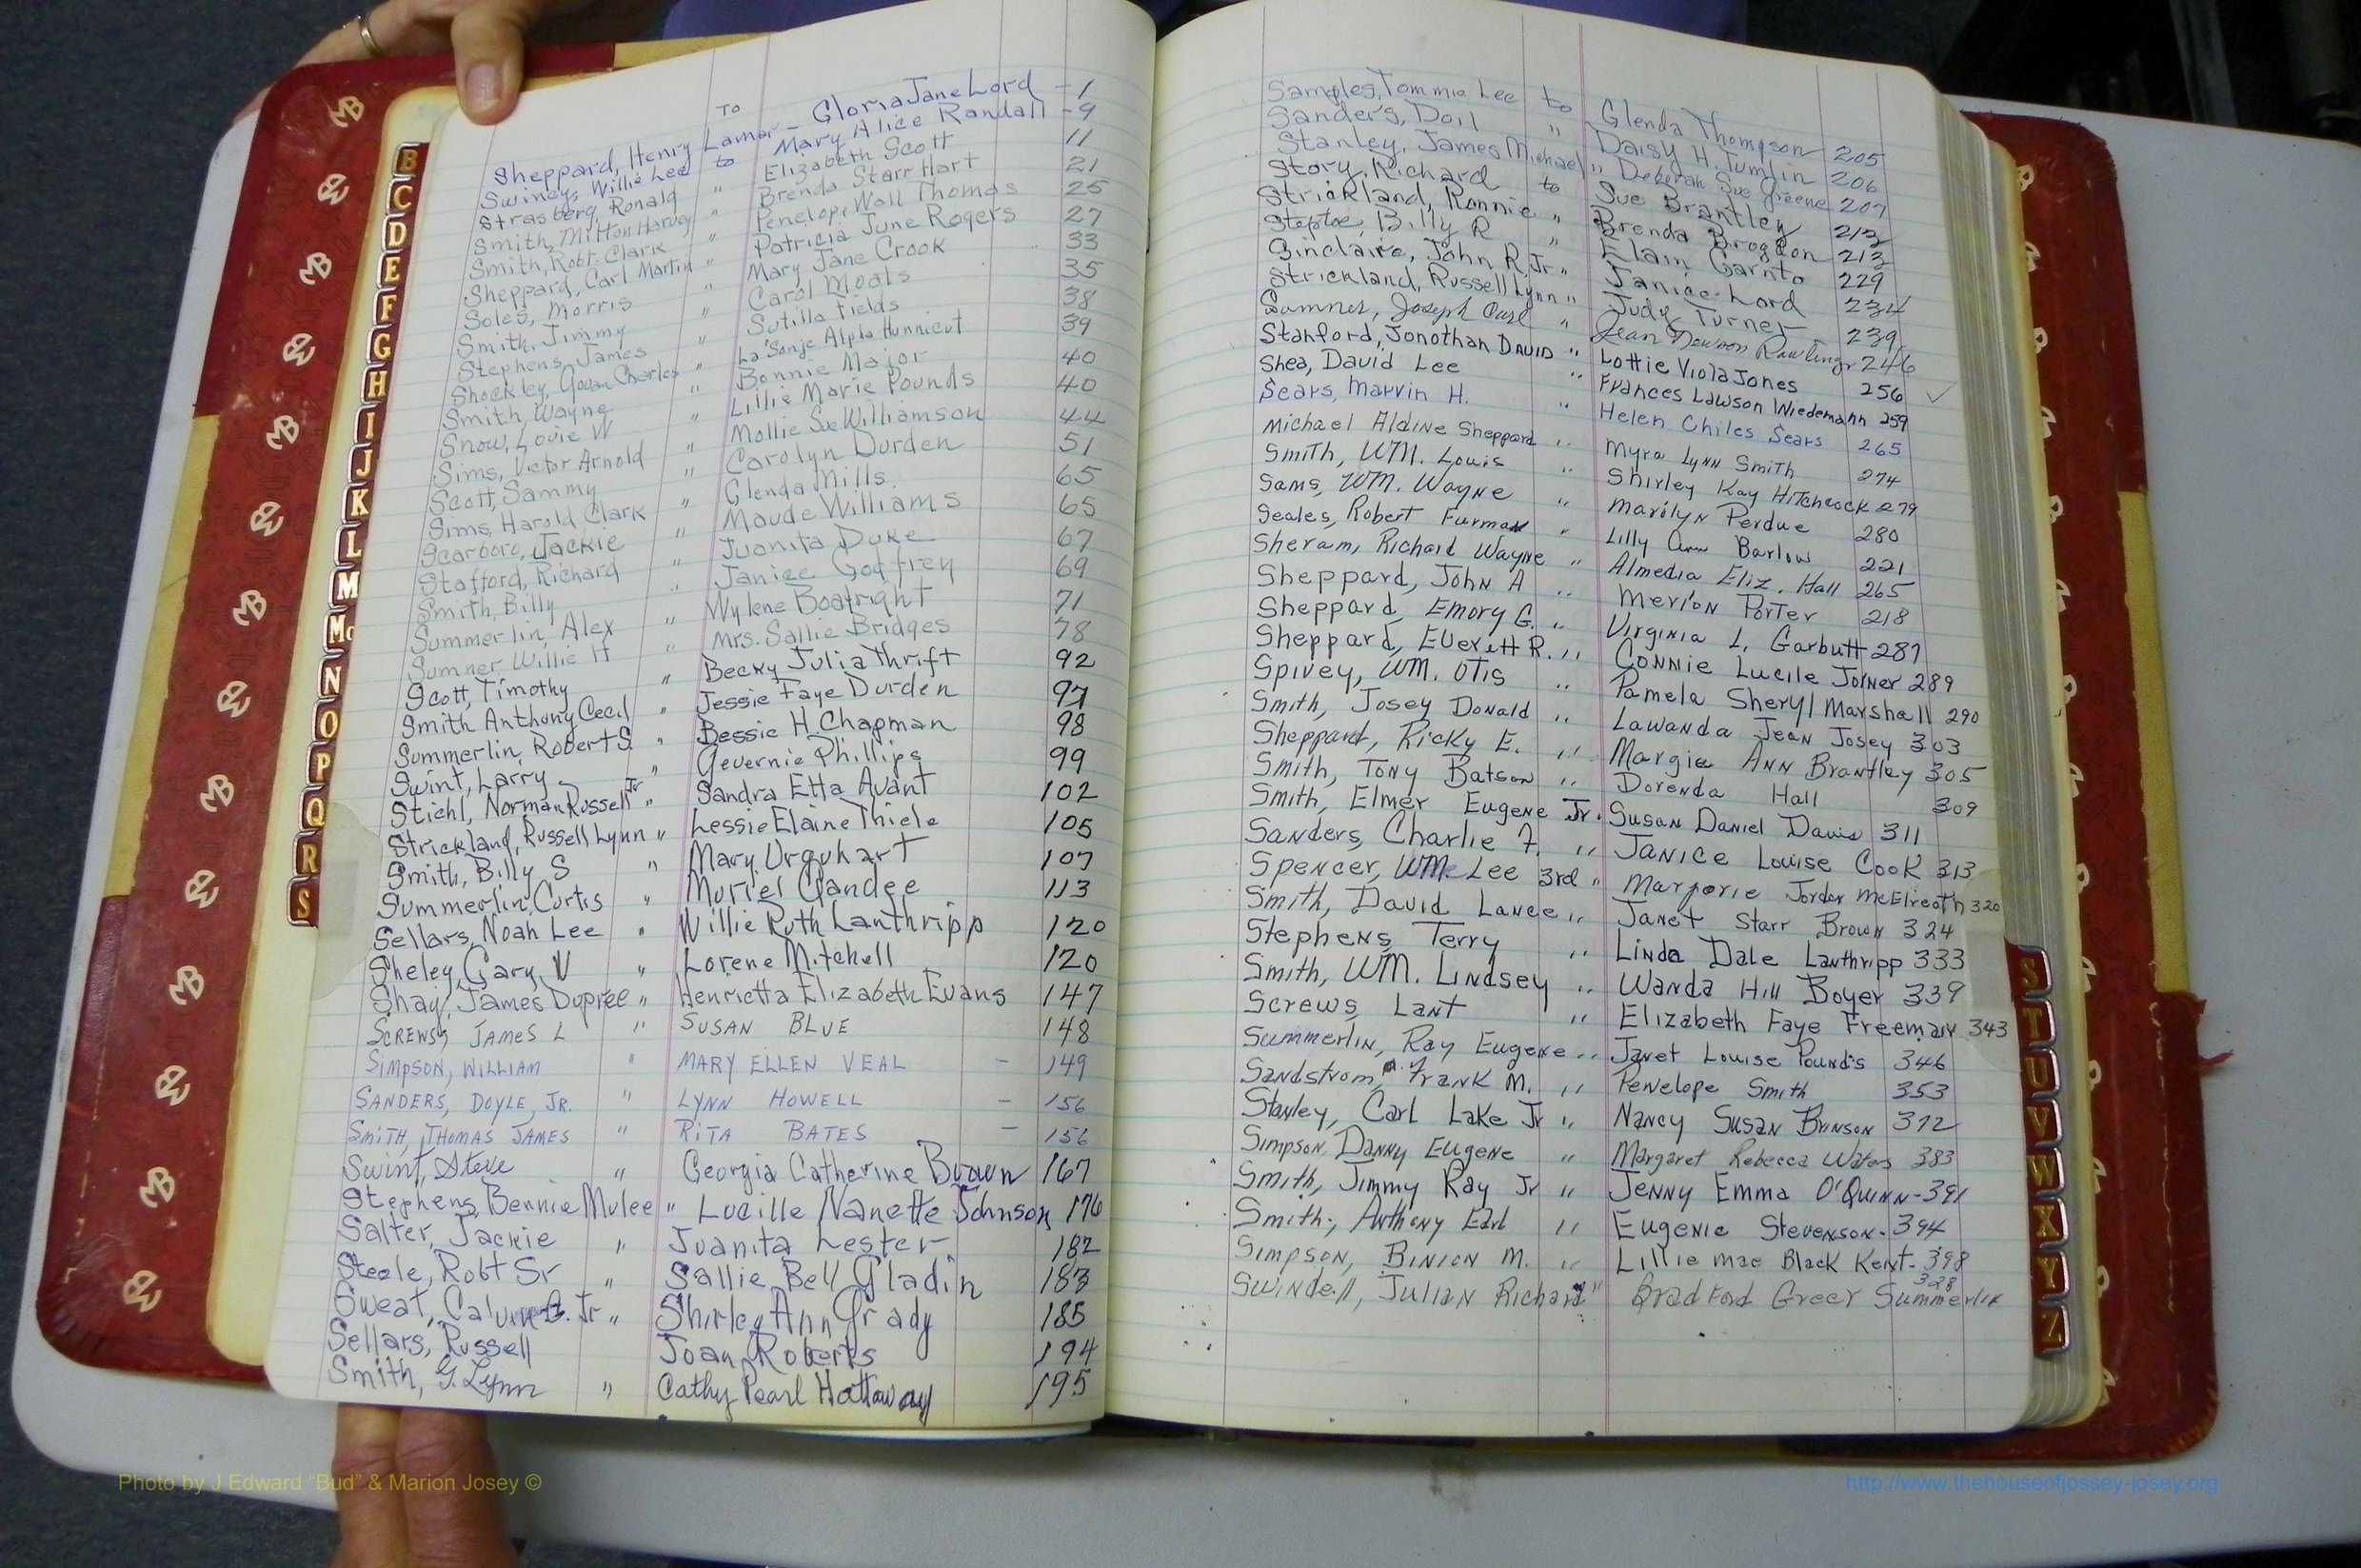 TO
Sheppard, Henry Lamar - Gloria Jane Lord - 1
Swiney, Willie Lee to Mary Alice Randall - 9
Strasberg, Ronald " Elizabeth Scott 11
Smith, Milton Harvey " Brenda Starr Hart 21
Smith, Robt. Clark " Penelope Wall Thomas 25
Sheppard, Carl Martin " Patricia June Rogers 27
Soles, Morris " Mary Jane Crook 33
Smith, Jimmy " Carol Moats 35
Stephens, James " Sutilla Fields 38
Shockley, Govan Charles " La'Sonje Alpha Hunnicut 39
Smith, Wayne " Bonnie Major 40
Snow, Louie W " Lillie Marie Pounds 40
Sims, Victor Arnold " Mollie Sue Williamson 44
Scott, Sammy " Carolyn Durden 51
Sims, Harold Clark " Glenda Mills. 65
Scarboro, Jackie " Maude Williams 65
Stafford, Richard " Juanita Duke 67
Smith, Billy " Janice Godfrey 69
Summerlin, Alex " Wylene Boatright 71
Sumner, Willie H " Mrs. Sallie Bridges 78
Scott, Timothy " Becky Julia Thrift 92
Smith Anthony Cecil " Jessie Faye Durden 97
Summerlin, Robert S. " Bessie H. Chapman 98
Swint, Larry " Gevernie Phillips 99
Stiehl, Norman Russell Jr " Sandra Etta Avant 102
Strickland, Russell Lynn " Lessie Elaine Thiele 105
Smith, Billy S " Mary Urquhart 107
Summerlin, Curtis " Muriel Claudee 113
Sellars, Noah Lee " Willie Ruth Lanthripp 120
Sheley, Gary V " Lorene Mitchell 120
Shay, James Dupree " Henrietta Elizabeth Evans 147
Screws, James L " Susan Blue 148
Simpson, William " Mary Ellen Veal - 149
Sanders, Doyle, Jr. " Lynn Howell - 156
Smith, Thomas James " Rita Bates - 156
Swint, Steve " Georgia Catherine Brown 167
Stephens, Bennie Mulee " Lucille Nanette Johnson 176
Salter, Jackie " Juanita Lester 182
Steele, Robt Sr " Sallie Bell Gladin 183
Sweat, Calvin B. Jr " Shirley Ann Grady 185
Sellars, Russell Joan Roberts 194
Smith, G. Lynn " Cathy Pearl Hattaway 195
Samples, Tommie Lee to Glenda Thompson 205
Sanders, Doil " Daisy H. Tumlin 206
Stanley, James Michael " Deborah Sue Greene 207
Story, Richard to Sue Brantley 212
Strickland, Ronnie " Brenda Brogdon 213
Steptoe, Billy R " Elain Garnto 229
Sinclaire, John R, Jr " Janice Lord 234
Strickland, Russell Lynn " Judy Turner 239
Sumner, Joseph Carl " Jean Rawlings 246
Stanford, Jonothan David " Lottie Viola Jones 256 ✓
Shea, David Lee " Frances Lawson Wiedemann 259
Sears, Marvin H. " Helen Chiles Sears 265
Michael Aldine Sheppard " Myra Lynn Smith 274
Smith, WM. Louis " Shirley Kay Hitchcock 279
Sams, WM. Wayne " Marilyn Perdue 280
Seales, Robert Furman " Lilly Ann Barlow 221
Sheram, Richard Wayne " Almedia Eliz. Hall 265
Sheppard, John A " Merion Porter 218
Sheppard, Emory G. " Virginia L. Garbutt 287
Sheppard, Everett R. " Connie Lucile Joiner 289
Spivey, WM. Otis " Pamela Sheryl Marshall 290
Smith, Josey Donald " Lawanda Jean Josey 303
Sheppard, Ricky E. " Margie Ann Brantley 305
Smith, Tony Batson " Dorenda Hall 309
Smith, Elmer Eugene Jr. Susan Daniel Davis 311
Sanders, Charlie F. " Janice Louise Cook 313
Spencer, WM. Lee 3rd " Marjorie Jordan McElreath 320
Smith, David Lance " Janet Starr Brown 324
Stephens, Terry " Linda Dale Lanthripp 333
Smith, WM. Lindsey " Wanda Hill Boyer 339
Screws, Lant " Elizabeth Faye Freeman 343
Summerlin, Ray Eugene " Janet Louise Pounds 346
Sandstrom, Frank M. " Penelope Smith 353
Stanley, Carl Lake Jr " Nancy Susan Brinson 372
Simpson, Danny Eugene " Margaret Rebecca Waters 383
Smith, Jimmy Ray Jr " Jenny Emma O'Quinn - 391
Smith, Anthony Earl " Eugenie Stevenson - 394
Simpson, Binion M. " Lillie Mae Black Kent - 398
328
Swindell, Julian Richard " Bradford Greer Summerlin
B
C
D
E
F
G
H
I
J
K
L
M
Mc
N
O
P
Q
R
S
S
T
U
V
W
X
Y
Z
Photo by J Edward "Bud" & Marion Josey ©
http://www.thehouseofjossey-josey.org